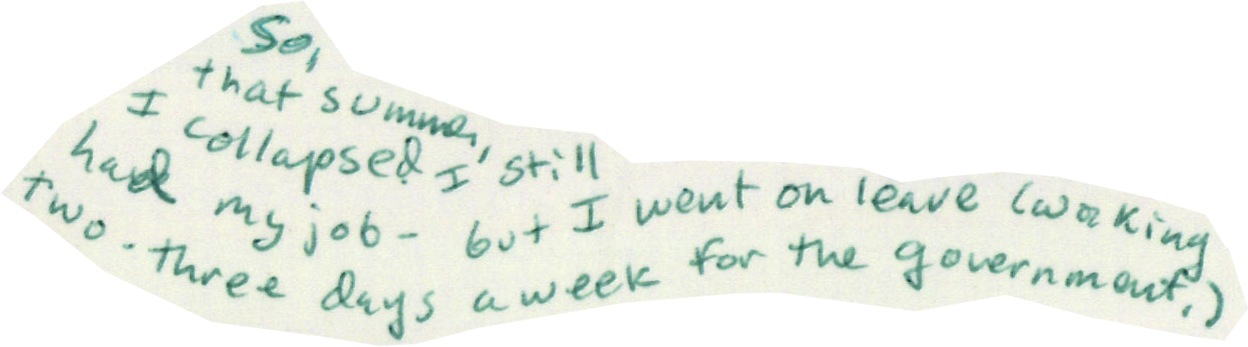 So,
that summer,
I collapsed. I still
had my job - but I went on leave (working
two-three days a week for the government.)